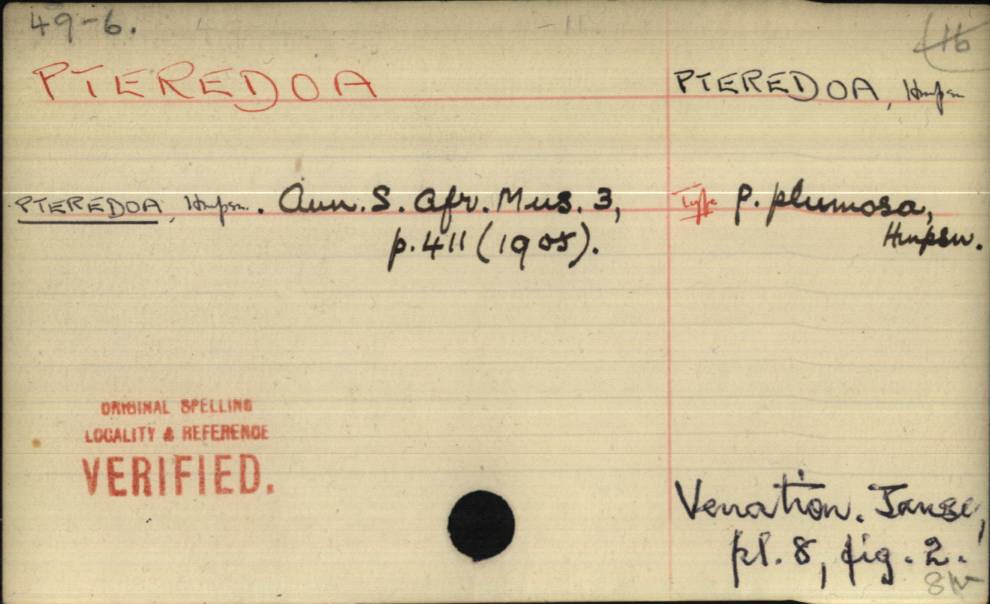 49-6.
PTEREDOA
PTEREDOA, Hmpsn
PTEREDOA, Hmpsn. Ann. S. Afr. Mus. 3,
p. 411 (1905).
Type P. plumosa,
Hmpsn.
ORIGINAL SPELLING
LOCALITY & REFERENCE
VERIFIED.
Venation. Janse,
pl. 8, fig. 2.